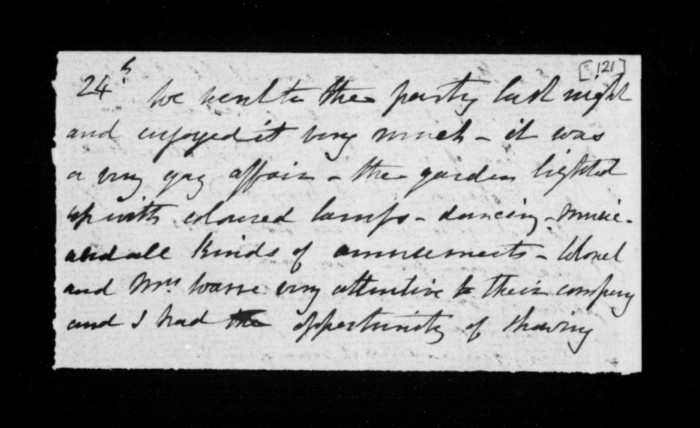 [121]
24th We went to the party last night
and enjoyed it very much - it was
a very gay affair - the garden lighted
up with coloured lamps - dancing - music -
and all kinds of amusements - Colonel
and Mrs very attentive to their company
and I had the opportunity of showing